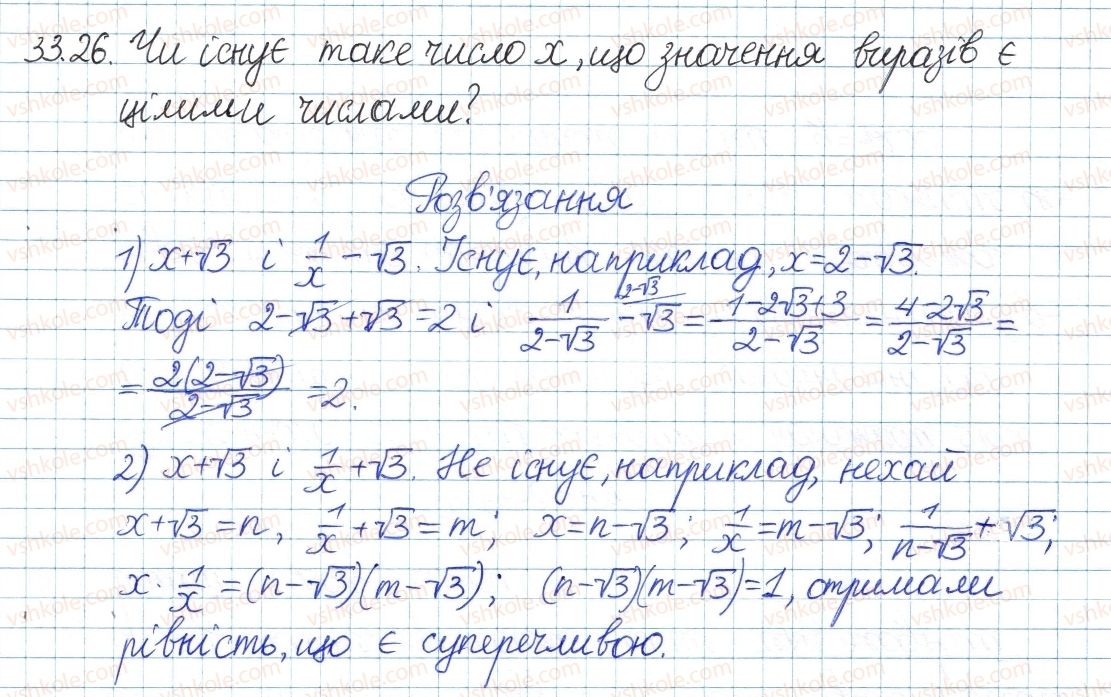 33.26. Чи існує таке число x, що значення виразів є
цілими числами?
Розв'язання
1) x+√3 і 1/x − √3. Існує, наприклад, x=2−√3.
Тоді 2−√3+√3=2 і 1/(2−√3) − √3 (2−√3) = (1−2√3+3)/(2−√3) = (4−2√3)/(2−√3) =
= 2(2−√3)/(2−√3) =2.
2) x+√3 і 1/x + √3. Не існує, наприклад, нехай
x+√3 = n, 1/x + √3 = m; x=n−√3; 1/x = m−√3; 1/(n−√3) + √3;
x · 1/x = (n−√3)(m−√3); (n−√3)(m−√3)=1, отримали
рівність, що є суперечливою.
vshkole.com